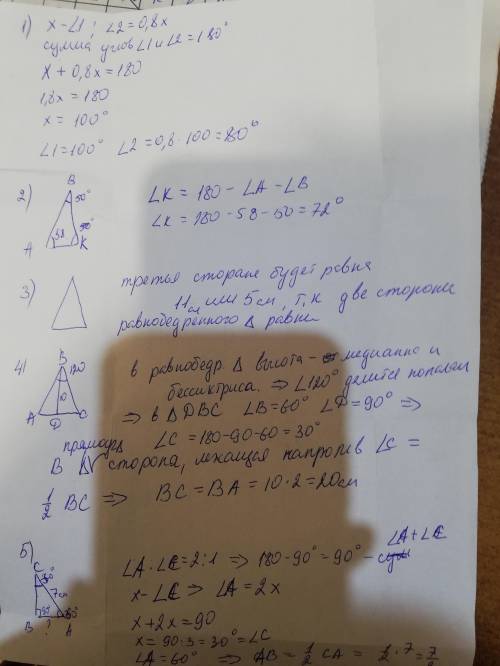 1) x - ∠1; ∠2 = 0,8x
сумма углов ∠1 и ∠2 = 180°
x + 0,8x = 180
1,8x = 180
x = 100°
∠1 = 100° ∠2 = 0,8 · 100 = 80°
2) B 50°
A 58 K
∠K = 180 - ∠A - ∠B
∠K = 180 - 58 - 50 = 72°
3) третья сторона будет равна
11 см или 5 см, т.к две стороны
равнобедренного Δ равны
4) B 120
10
A D C
в равнобедр. Δ высота - медианна и
бессиктриса. ⇒ ∠120° делится пополам
⇒ в Δ DBC ∠B = 60° ∠D = 90° ⇒
∠C = 180 - 90 - 60 = 30°
В прямоуг Δ сторона, лежащая напротив ∠C =
1/2 BC ⇒ BC = BA = 10 · 2 = 20 см
5) C 30°
7см
B ? A
∠A : ∠C = 2:1 ⇒ 180 - 90° = 90° - ∠A + ∠C
x - ∠C ⇒ ∠A = 2x
x + 2x = 90
x = 90:3 = 30° = ∠C
∠A = 60° ⇒ AB = 1/2 CA = 1/2 · 7 = 7